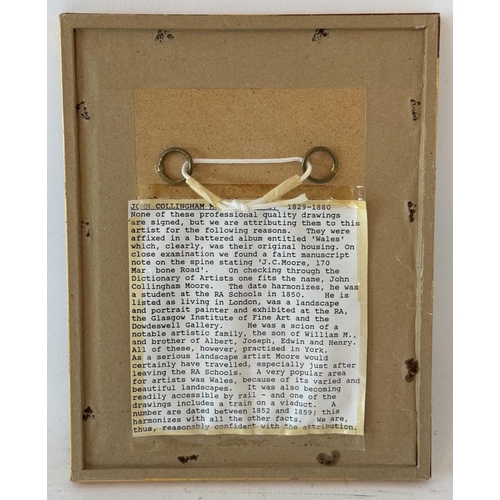 JOHN COLLINGHAM 1829-1880
None of these professional quality drawings
are signed, but we are attributing them to this
artist for the following reasons. They were
affixed in a battered album entitled 'Wales'
which, clearly, was their original housing. On
close examination we found a faint manuscript
note on the spine stating 'J.C.Moore, 170
Mar bone Road'. On checking through the
Dictionary of Artists one fits the name, John
Collingham Moore. The date harmonizes, he was
a student at the RA Schools in 1850. He is
listed as living in London, was a landscape
and portrait painter and exhibited at the RA,
the Glasgow Institute of Fine Art and the
Dowdeswell Gallery. He was a scion of a
notable artistic family, the son of William M.,
and brother of Albert, Joseph, Edwin and Henry.
All of these, however, practised in York.
As a serious landscape artist Moore would
certainly have travelled, especially just after
leaving the RA Schools. A very popular area
for artists was Wales, because of its varied and
beautiful landscapes. It was also becoming
readily accessible by rail - and one of the
drawings includes a train on a viaduct. A
number are dated between 1852 and 1859; this
harmonizes with all the other facts. We are,
thus, reasonably confident with the attribution.